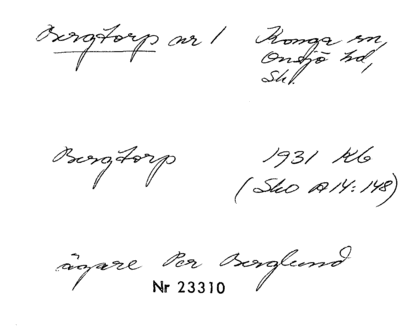 Bergtorp nr 1 Konga sn,
Onsjö hd,
Sk.
Bergtorp 1931 Kb
(Sko A14:148)
ägare Per Berglund
Nr 23310